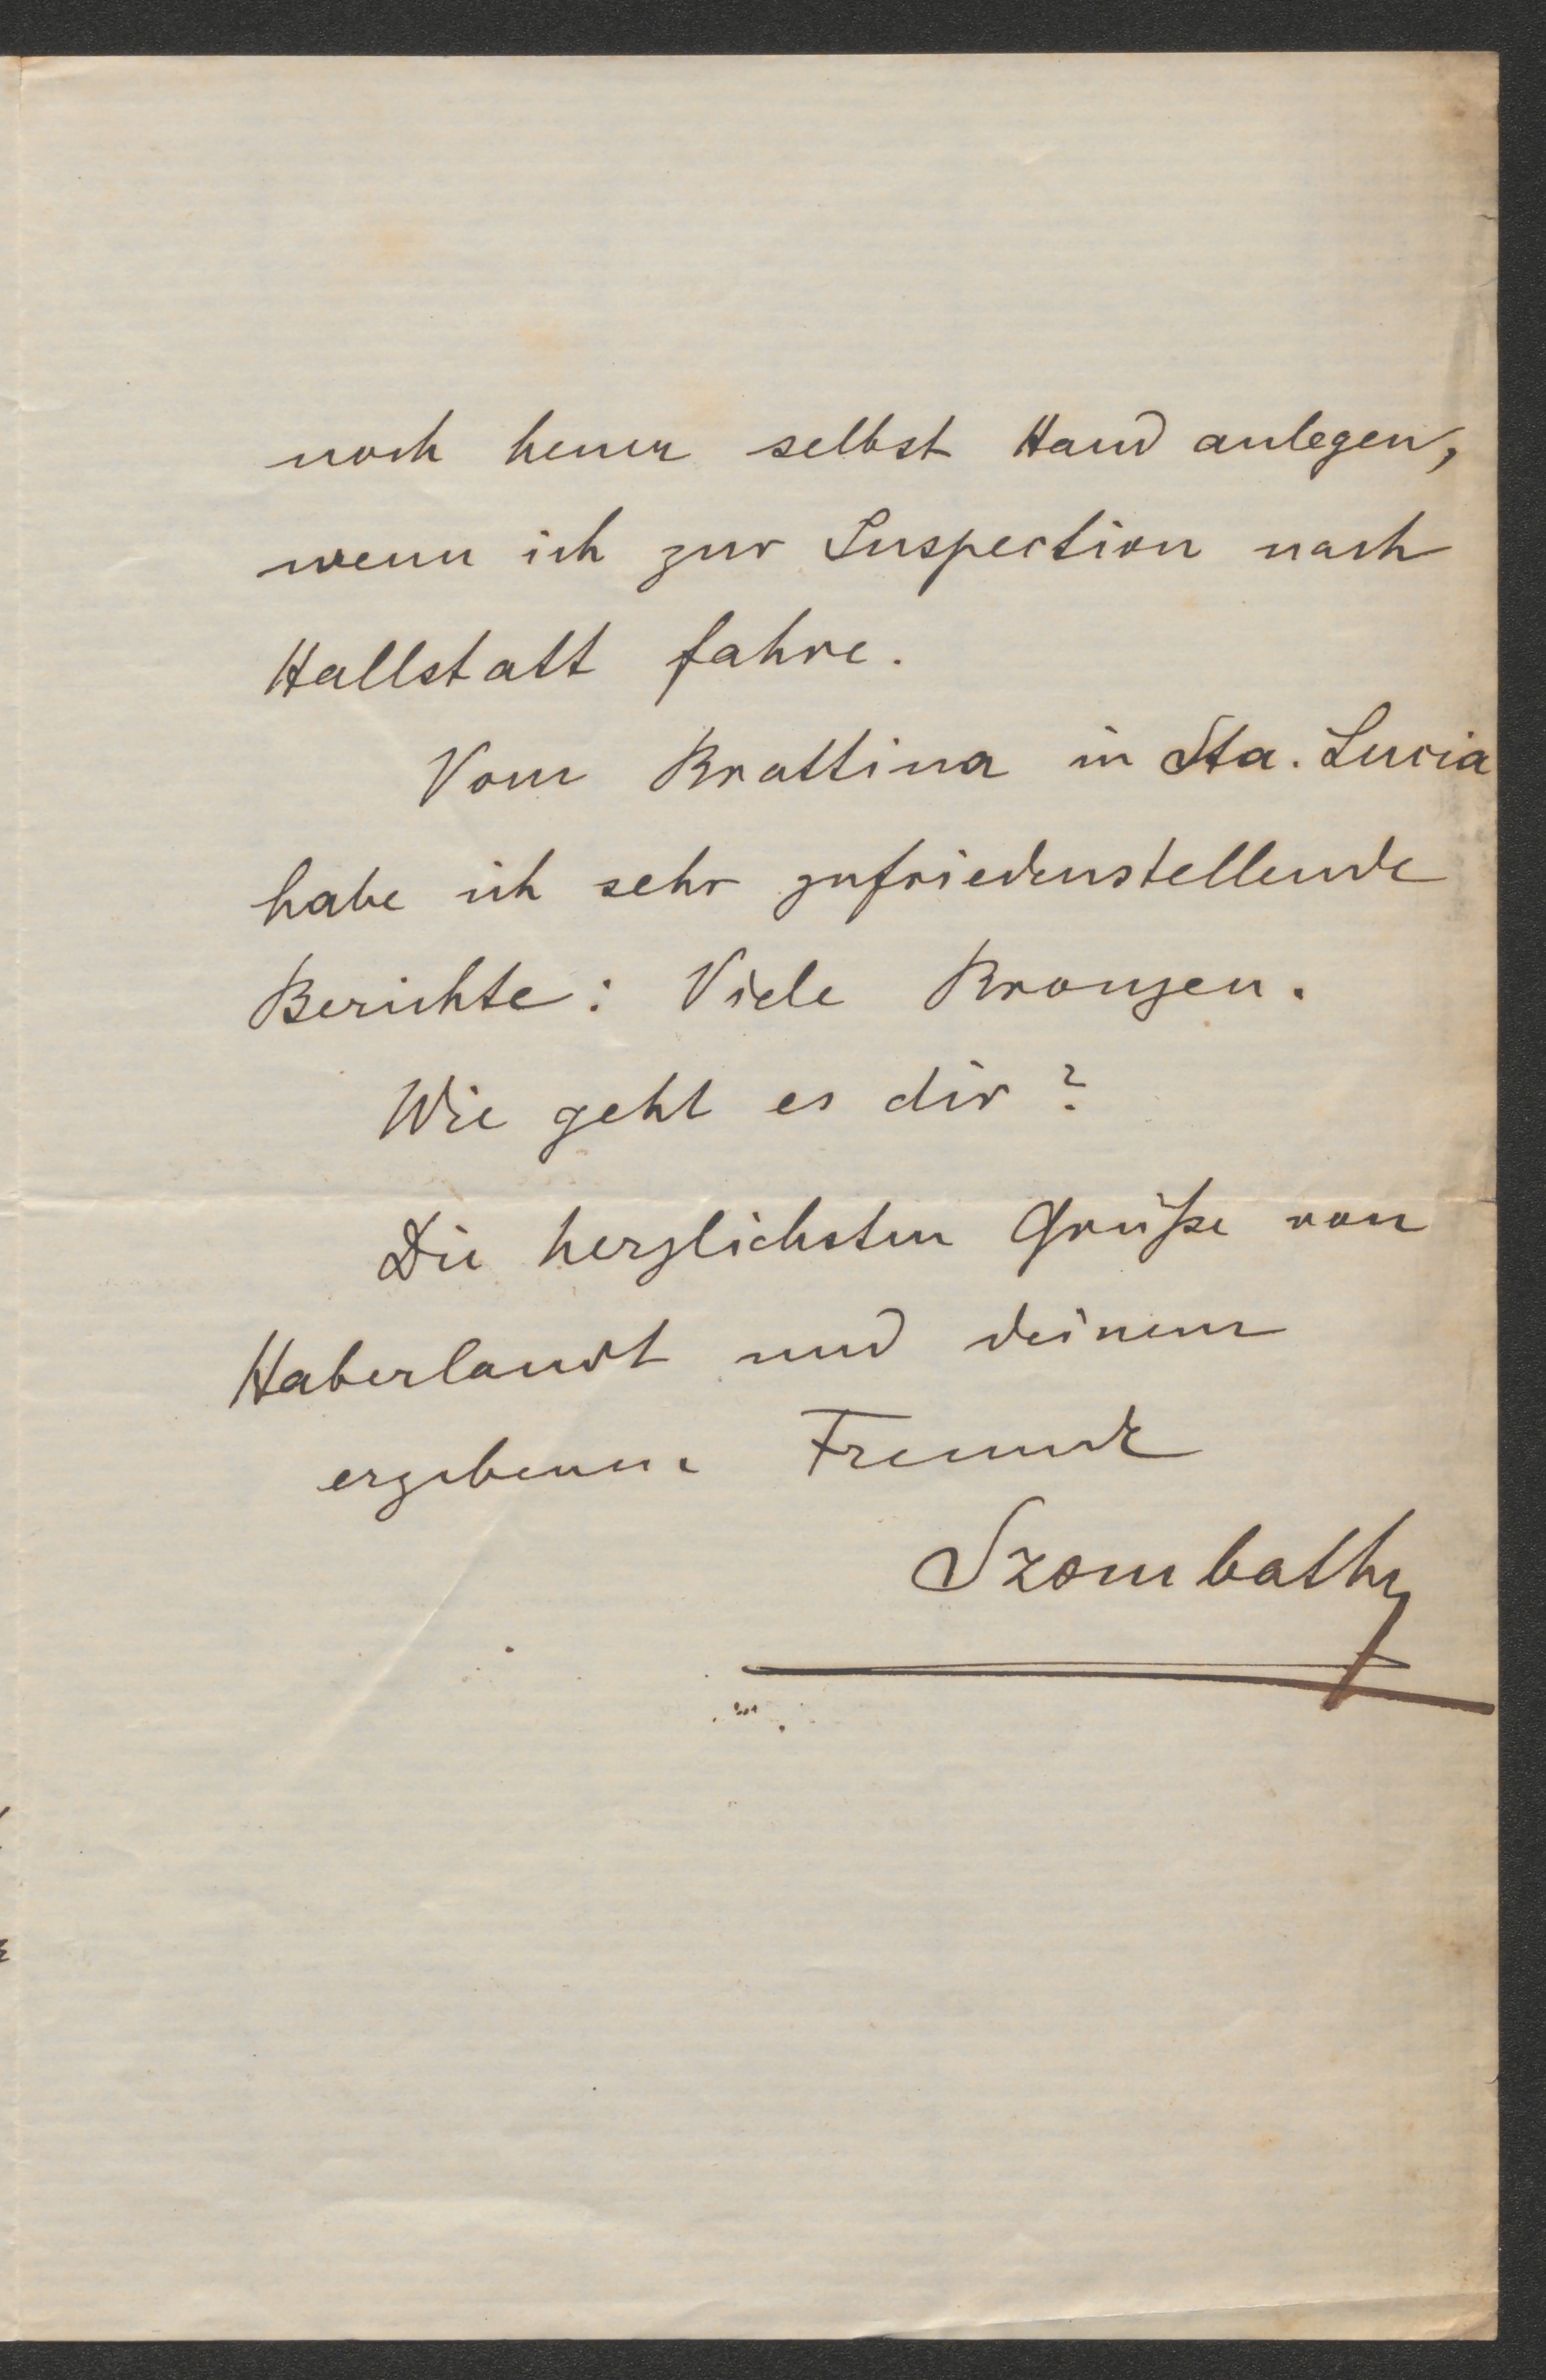 noch heuer selbst Hand anlegen,
wenn ich zur Inspection nach
Hallstatt fahre.
Vom Brattina in Sta. Lucia
habe ich sehr zufriedenstellende
Berichte: Viele Bronzen.
Wie geht es dir?
Die herzlichsten Grüße von
Haberlandt und deinem
ergebenen Freunde
Szombathy